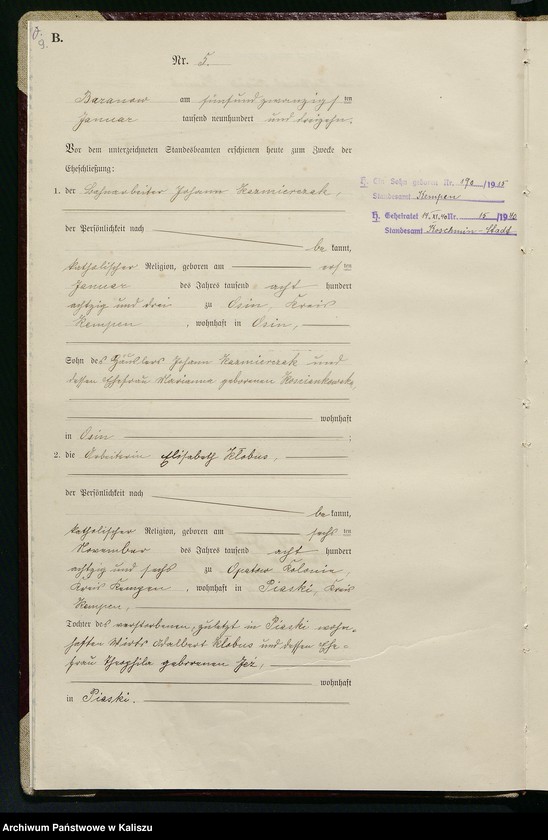 B.
9.
Nr. 5.
Baranow am fünfundzwanzigsten
Januar tausend neunhundert und dreizehn.
Vor dem unterzeichneten Standesbeamten erschienen heute zum Zwecke der
Eheschließung:
1. der Bahnarbeiter Johann Kazmierczak,
der Persönlichkeit nach
bekannt,
katholischer Religion, geboren am ten
Januar des Jahres tausend acht hundert
achtzig und drei zu Osin, Kreis
Kempen, wohnhaft in Osin,
Sohn des Häuslers Johann Kazmierczak und
dessen Ehefrau Marianna geborenen
wohnhaft
in Osin;
2. die Arbeiterin Elisabeth Kłobus,
der Persönlichkeit nach
bekannt,
katholischer Religion, geboren am sechsten
November des Jahres tausend acht hundert
achtzig und sechs zu Opatow Kolonie,
Kreis Kempen, wohnhaft in Piaski, Kreis
Kempen,
Tochter des verstorbenen, zuletzt in Piaski wohn-
haften Wirts Adalbert Kłobus und dessen Ehe-
frau Theophila geborenen Jeż,
wohnhaft
in Piaski.
Ein Sohn geboren Nr. 190/1915
Standesamt Kempen
Geheiratet 14.XI.40 Nr. 15/1940
Standesamt Koschmin-Stadt
Archiwum Państwowe w Kaliszu